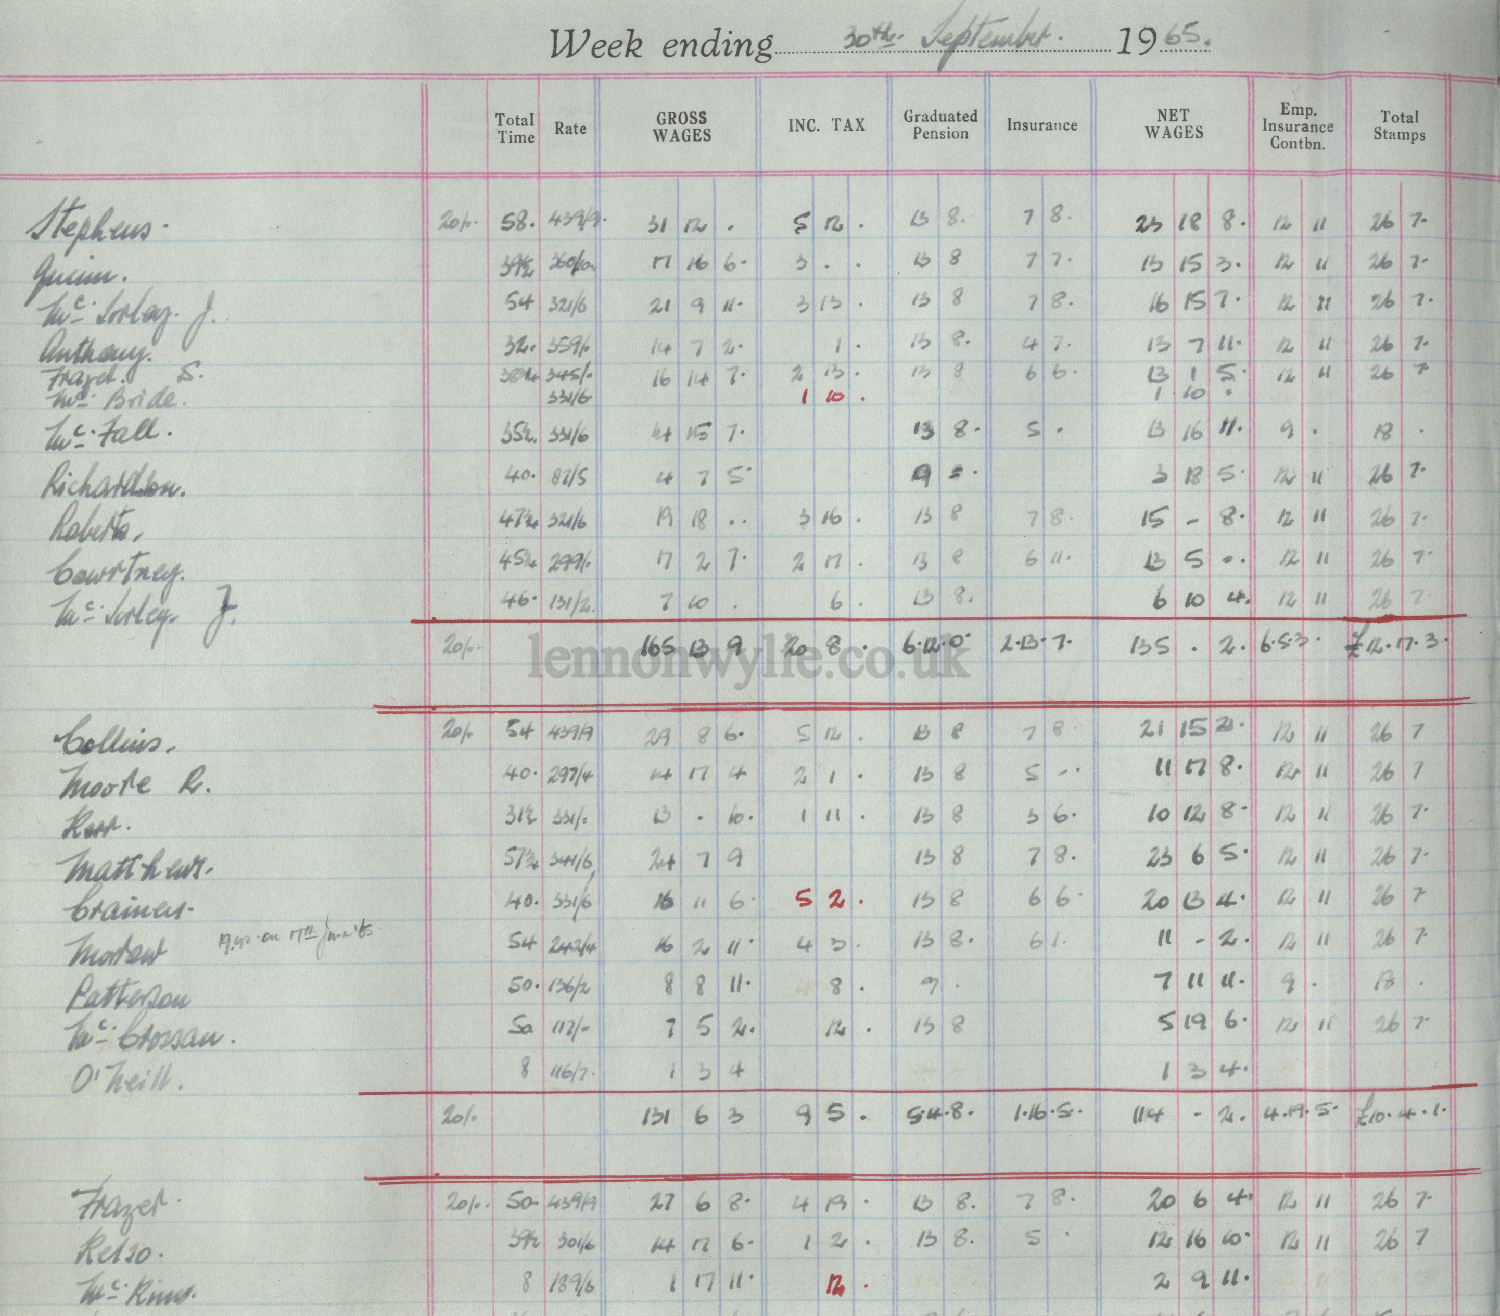 Week ending 30th September. 1965.
Total Time Rate GROSS WAGES INC. TAX Graduated Pension Insurance NET WAGES Emp. Insurance Contbn. Total Stamps
Stephens. 20/- 58. 439/9. 31 12 . 5 12 . 13 8. 7 8. 23 18 8. 12 11 26 7.
Quinn. 39½ 360/- 17 16 6. 3 . . 13 8 7 7. 13 15 3. 12 11 26 7.
Mc. Sorley. J. 54 321/6 21 9 11. 3 13 . 13 8 7 8. 16 15 7. 12 11 26 7.
Anthony. 32. 359/6 14 7 2. 1 . 13 8. 4 7. 13 7 11. 12 11 26 7.
Frazer. S. 38¾ 345/- 16 14 7. 2 13 . 13 8 6 6. 13 1 5. 12 11 26 7
Mc. Bride. 331/6 1 10 . 1 10 .
Mc. Fall. 35½ 331/6 14 15 7. 13 8. 5 . 13 16 11. 9 . 18 .
Richardson. 40. 87/5 4 7 5. 9 = . 3 18 5. 12 11 26 7.
Roberts. 47¾ 321/6 19 18 .. 3 16 . 13 8 7 8. 15 - 8. 12 11 26 7.
Courtney. 45¾ 299/- 17 2 7. 2 17 . 13 8 6 11. 13 5 .. 12 11 26 7.
Mc. Sorley. J. 46. 131/2. 7 10 . 6 . 13 8. 6 10 4. 12 11 26 7.
20/- 165 13 9 20 8 . 6.12.0 2.13.7. 135 . 2. 6.5.3. £12.17.3.
lennonwylie.co.uk
Collins. 20/- 54 439/9 29 8 6. 5 12 . 13 8 7 8. 21 15 2. 12 11 26 7
Moore R. 40. 297/4 14 17 4 2 1 . 13 8 5 -. 11 17 8. 12 11 26 7
Kerr. 31½ 331/- 13 . 10. 1 11 . 13 8 3 6. 10 12 8. 12 11 26 7.
Matthews. 57¾ 341/6 24 7 9 13 8 7 8. 23 6 5. 12 11 26 7.
Crainer. 40. 331/6 16 11 6. 5 2 . 13 8 6 6. 20 13 4. 12 11 26 7
Morrow on 17th June '65. 54 242/4 16 2 11. 4 3 . 13 8. 6 1. 11 - 2. 12 11 26 7.
Patterson 50. 136/2 8 8 11. 8 . 9 . 7 11 11. 9 . 18 .
Mc. Crossan. 50 117/- 7 5 2. 12 . 13 8 5 19 6. 12 11 26 7.
O'Neill. 8 116/7. 1 3 4 1 3 4.
20/- 131 6 3 9 5 . 5.4.8. 1.16.5. 114 - 2. 4.19.5. £10.4.1.
Frazer. 20/- 50 439/9 27 6 8. 4 19 . 13 8. 7 8. 20 6 4. 12 11 26 7.
Kelso. 39½ 301/6 14 17 6. 1 2 . 13 8. 5 . 12 16 10. 12 11 26 7
Mc. Kinns. 8 189/6 1 17 11. 12 . 2 9 11.